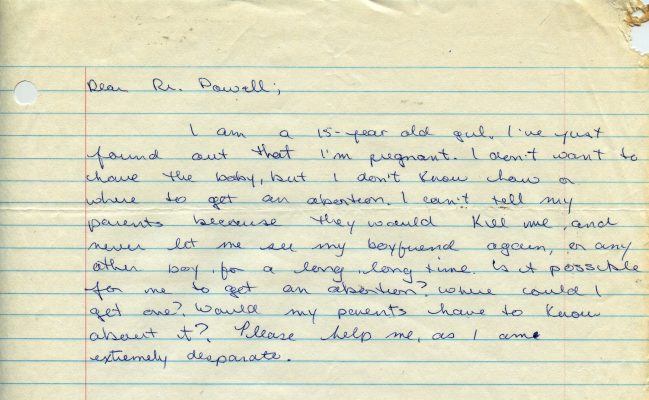 Dear Dr. Powell;
I am a 15-year old girl. I've just
found out that I'm pregnant. I don't want to
have the baby, but I don't know how or
where to get an abortion. I can't tell my
parents because they would kill me, and
never let me see my boyfriend again, or any
other boy, for a long, long time. Is it possible
for me to get an abortion? Where could I
get one? Would my parents have to know
about it? Please help me, as I am
extremely desparate.